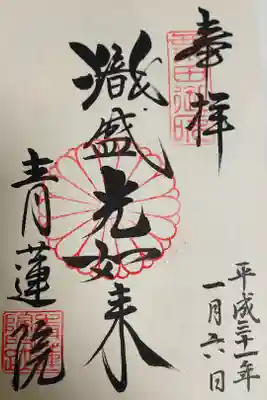 奉拝
熾盛光如来
青蓮院
平成三十一年
一月六日